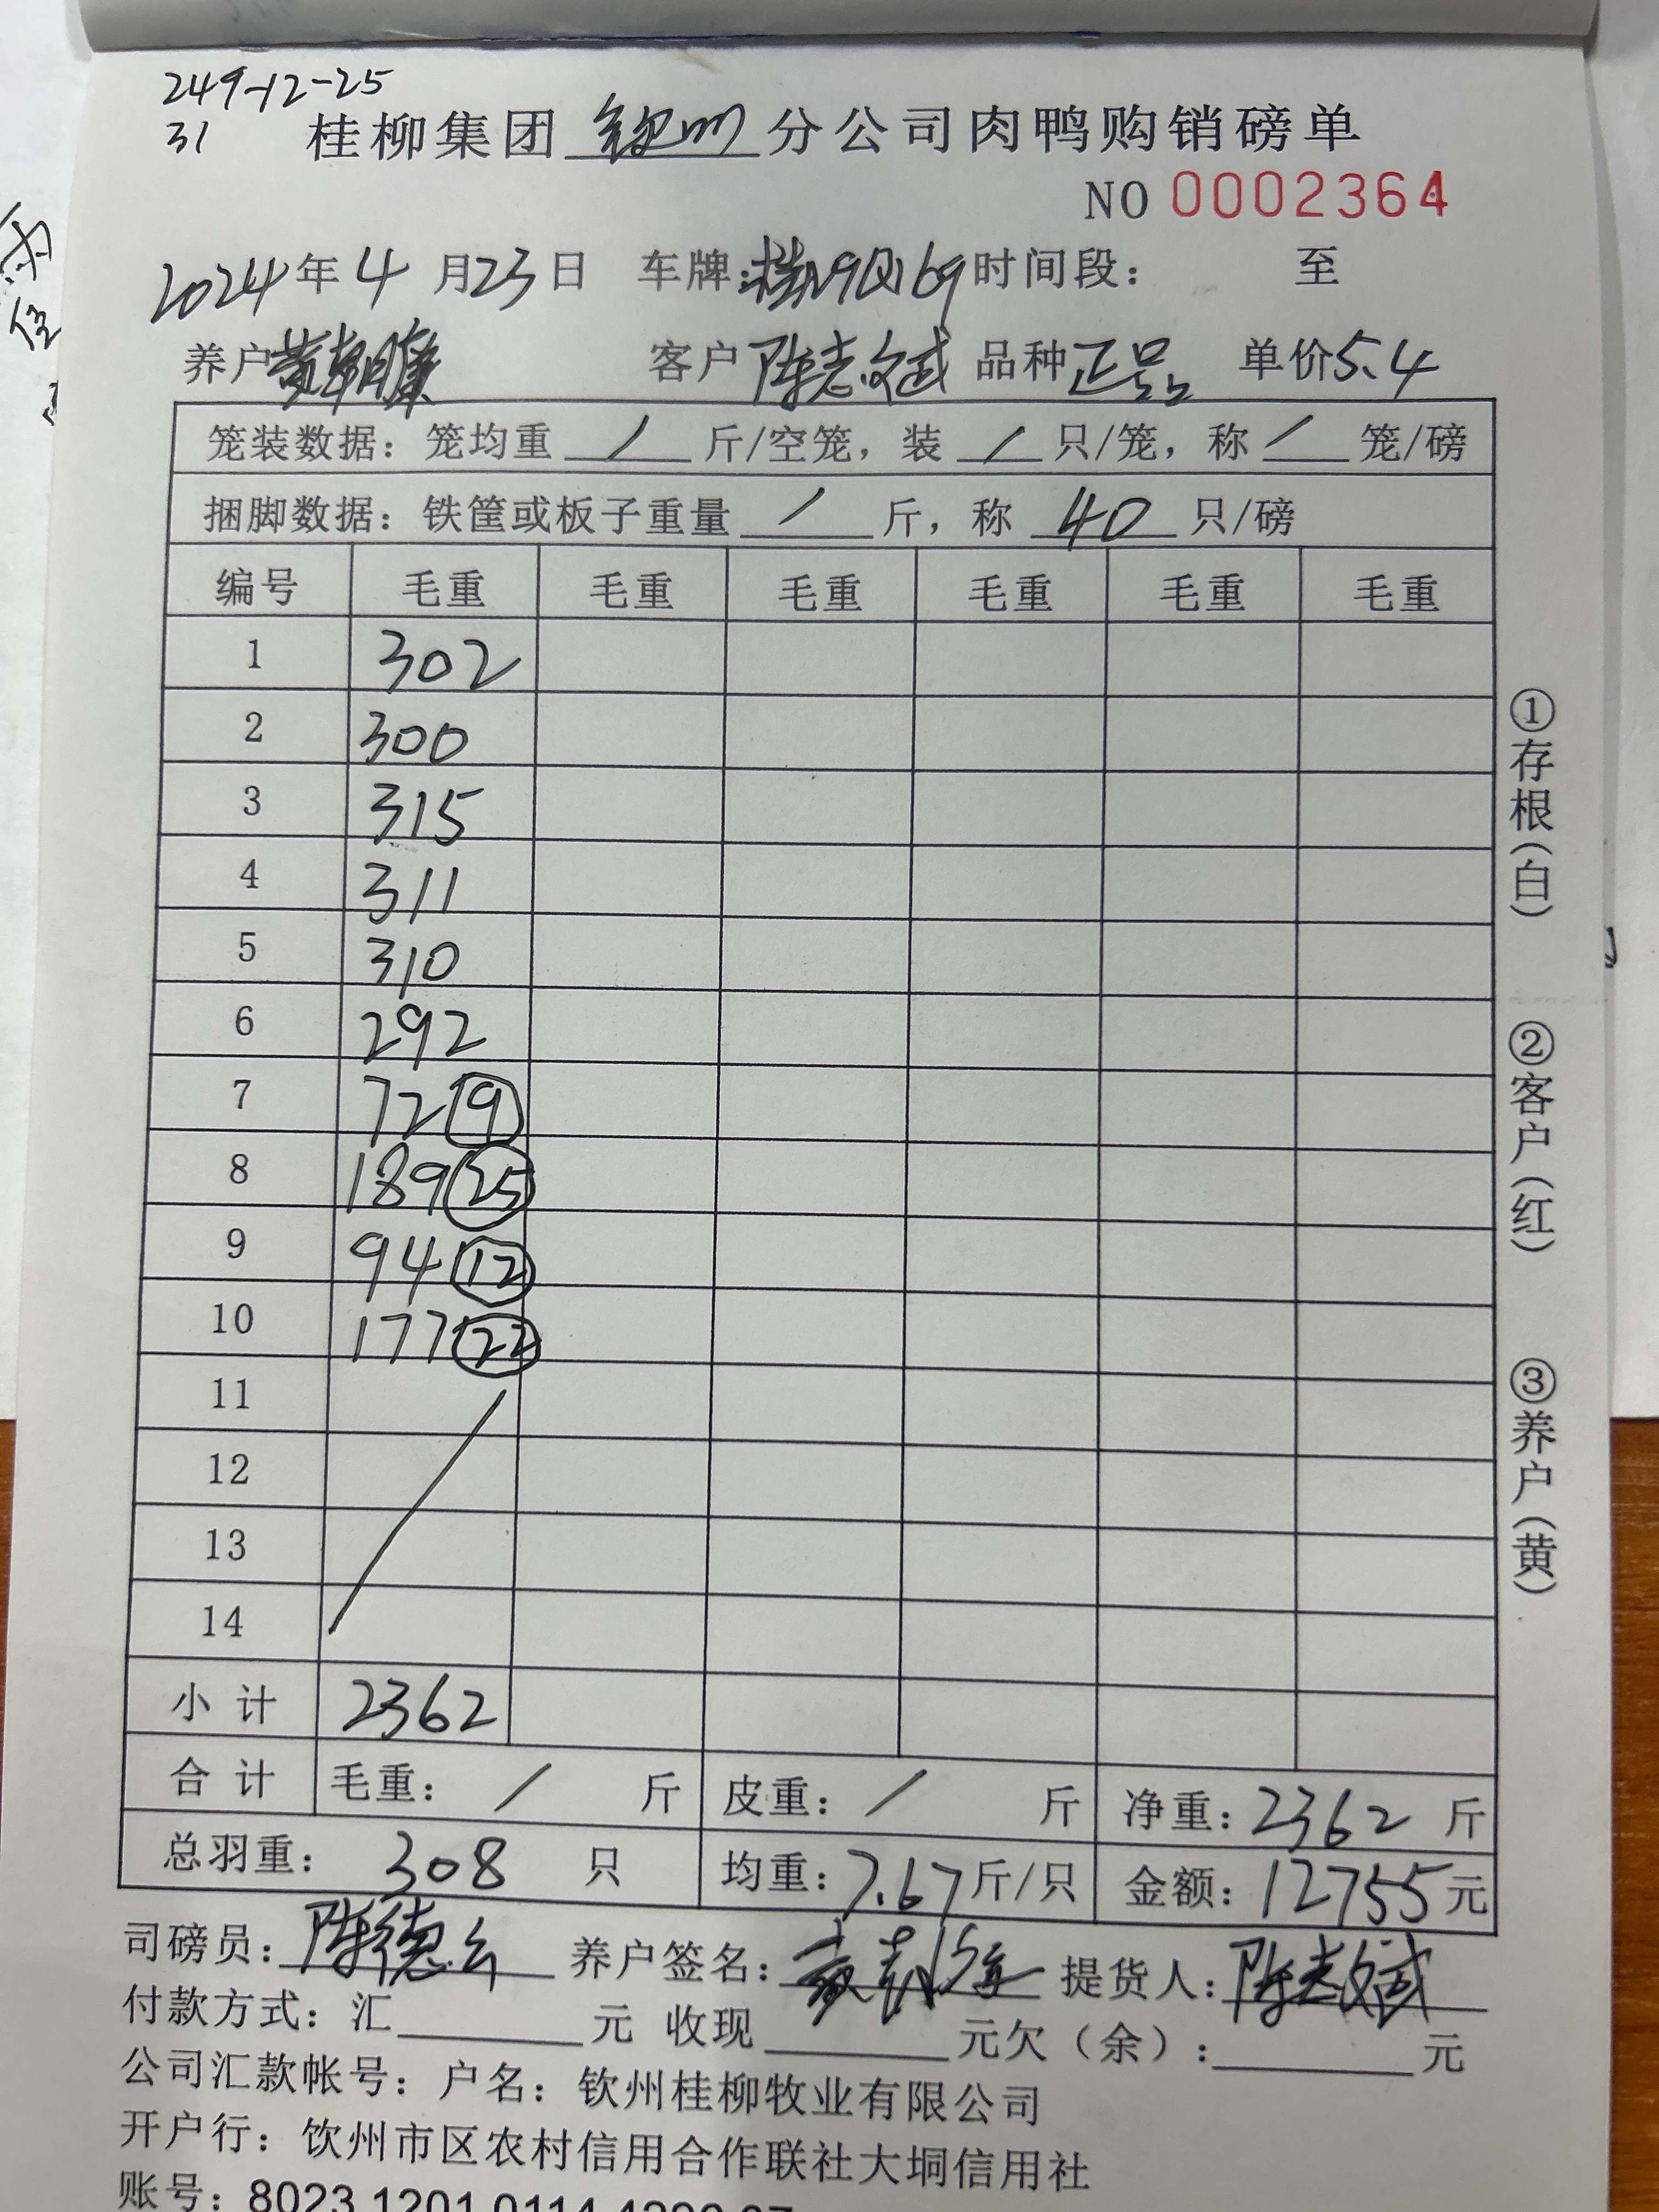 249-12-25
31
桂柳集团 钦州 分公司肉鸭购销磅单
NO 0002364
2024年4月23日 车牌:桂N9Q169 时间段: 至
养户 客户 陈志斌 品种 正品 单价5.4
笼装数据: 笼均重 / 斤/空笼, 装 / 只/笼, 称 / 笼/磅
捆脚数据: 铁筐或板子重量 / 斤, 称 40 只/磅
编号 毛重 毛重 毛重 毛重 毛重 毛重
1 302
2 300
3 315
4 311
5 310
6 292
7 72 9
8 189 25
9 94 12
10 177 22
11
12
13
14
小计 2362
合计 毛重: / 斤 皮重: / 斤 净重: 2362 斤
总羽重: 308 只 均重: 7.67斤/只 金额: 12755元
司磅员: 养户签名: 提货人: 陈志斌
付款方式: 汇 元 收现 元欠(余): 元
公司汇款帐号: 户名: 钦州桂柳牧业有限公司
开户行: 钦州市区农村信用合作联社大垌信用社
账号: 8023 1201 0114
①存根(白)
②客户(红)
③养户(黄)